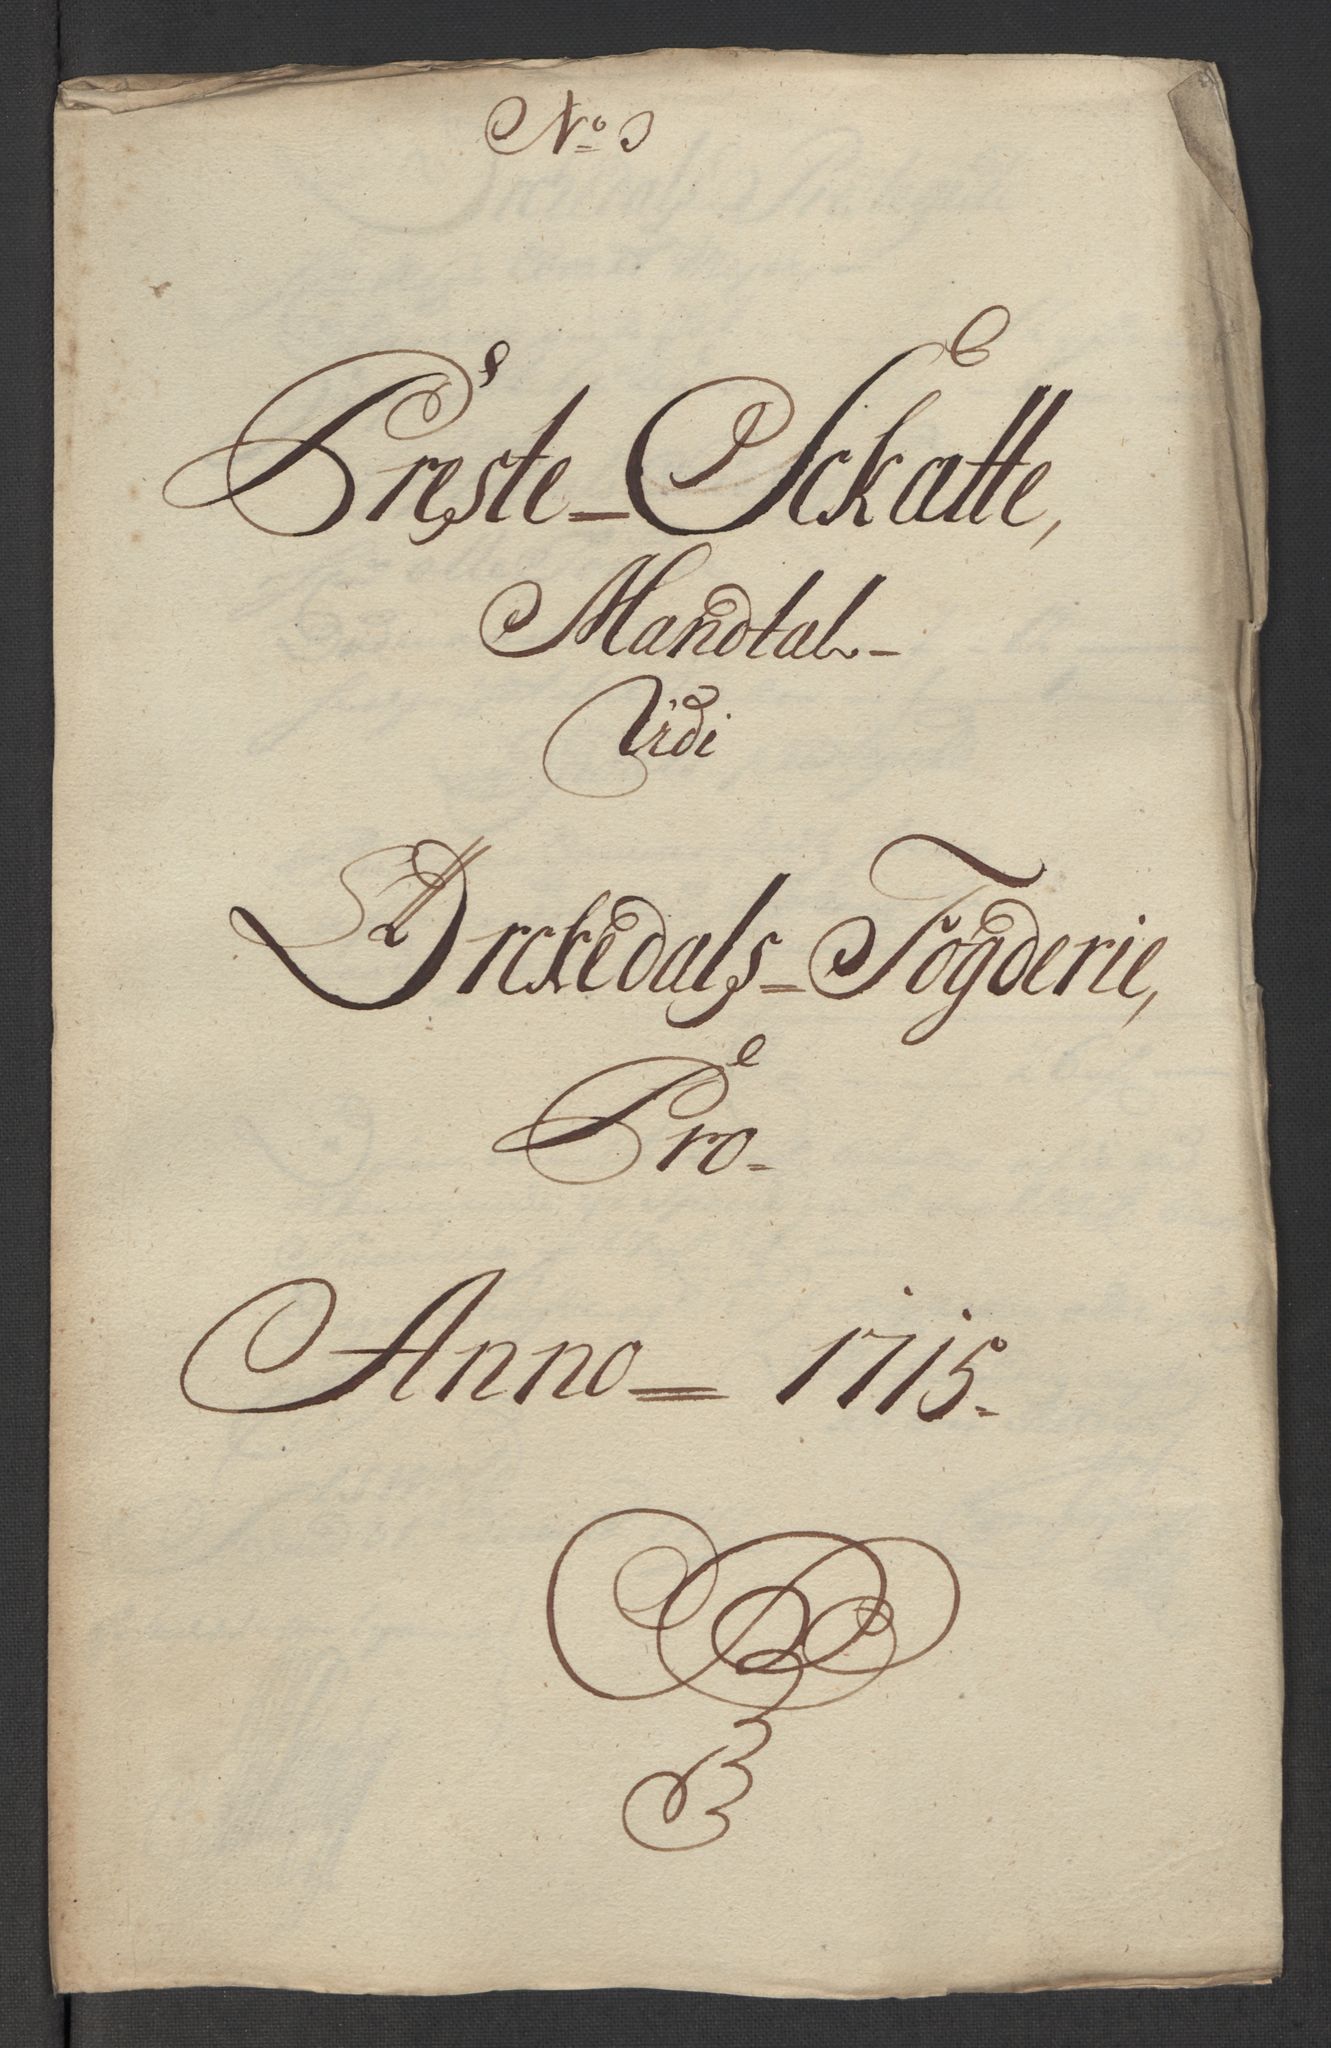 No 3
Preste_Sckatte,
Mandtal_
Udi
Orckedals_Fogderie,
Pro_
Anno_ 1715.